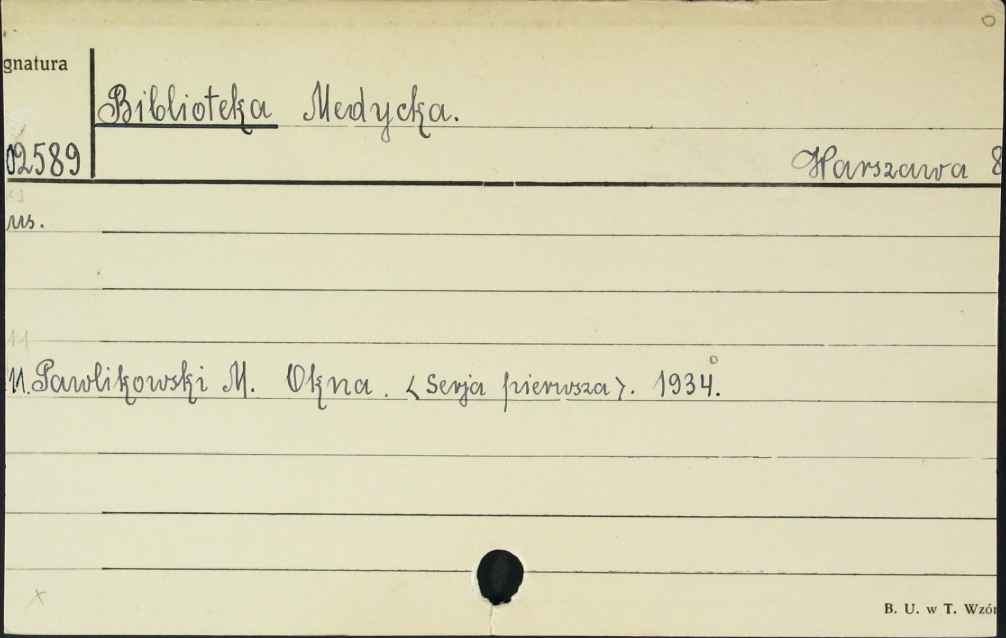 gnatura
Biblioteka Medycka.
02589
Warszawa 8
us.
11
11. Pawlikowski M. Okna. <Serja pierwsza>. 1934.
B. U. w T. Wzór